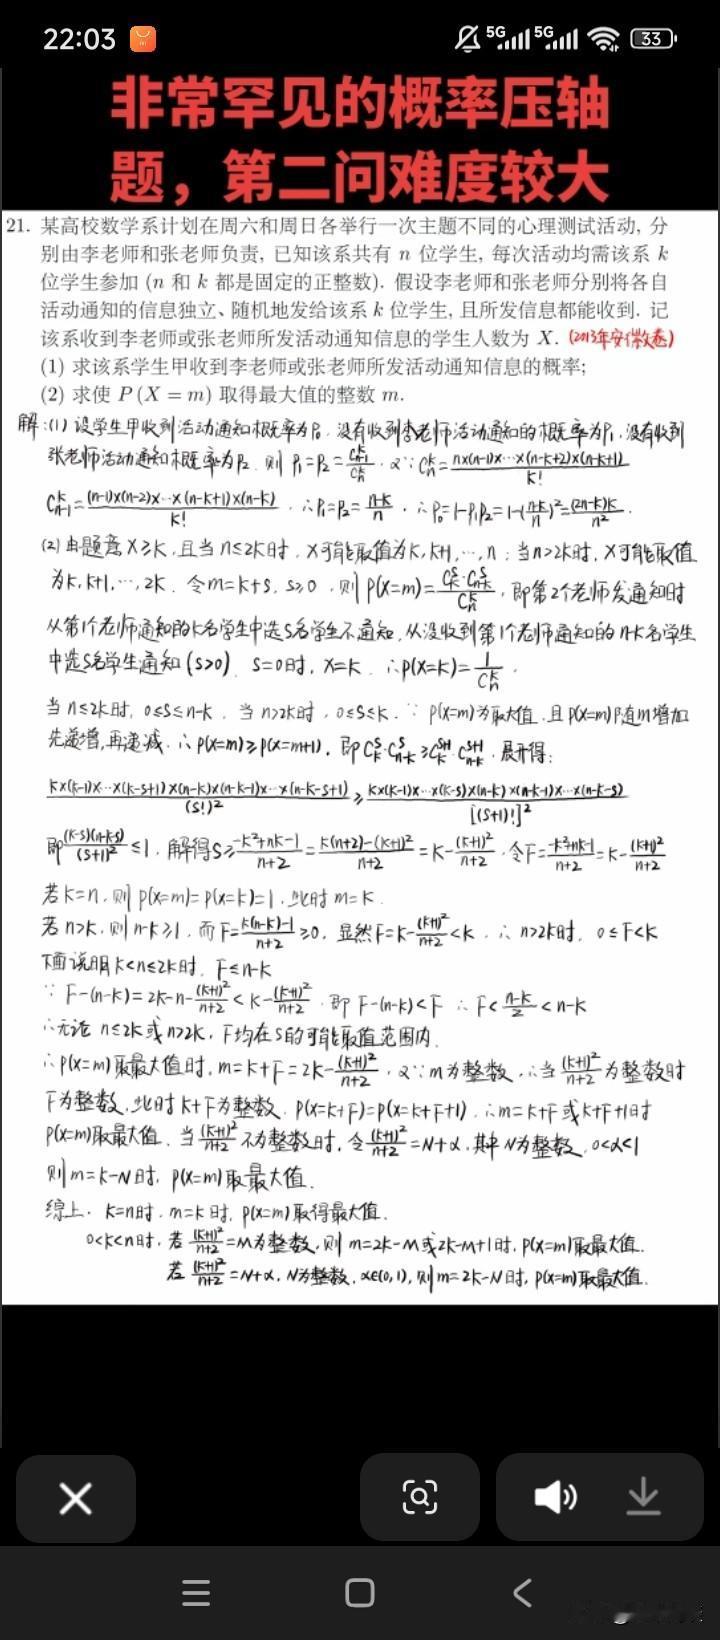 22:03
5G 5G 33
非常罕见的概率压轴
题，第二问难度较大
21. 某高校数学系计划在周六和周日各举行一次主题不同的心理测试活动, 分
别由李老师和张老师负责, 已知该系共有 n 位学生, 每次活动均需该系 k
位学生参加 (n 和 k 都是固定的正整数). 假设李老师和张老师分别将各自
活动通知的信息独立、随机地发给该系 k 位学生, 且所发信息都能收到. 记
该系收到李老师或张老师所发活动通知信息的学生人数为 X. (2013年安徽卷)
(1) 求该系学生甲收到李老师或张老师所发活动通知信息的概率;
(2) 求使 P (X = m) 取得最大值的整数 m.
解:(1) 设学生甲收到活动通知概率为P₀, 没有收到李老师活动通知的概率为P₁, 没有收到
张老师活动通知概率为P₂. 则 P₁=P₂=C_{n-1}^k/C_n^k. 又∵C_n^k=n×(n-1)×…×(n-k+2)×(n-k+1)/k!
C_{n-1}^k=(n-1)×(n-2)×…×(n-k+1)×(n-k)/k! ∴P₁=P₂=(n-k)/n. ∴P₀=1-P₁P₂=1-((n-k)/n)²=(2n-k)k/n².
(2) 由题意X≥k, 且当n≤2k时, X可能取值为k, k+1, …, n; 当n>2k时, X可能取值
为k, k+1, …, 2k. 令m=k+s, s≥0, 则P(X=m)=C_k^s·C_{n-k}^s/C_n^k, 即第2个老师发通知时
从第1个老师通知的k名学生中选s名学生不通知, 从没收到第1个老师通知的n-k名学生
中选s名学生通知(s>0). s=0时, X=k. ∴P(X=k)=1/C_n^k.
当n≤2k时, 0≤s≤n-k. 当n>2k时, 0≤s≤k. ∵P(X=m)为最大值, 且P(X=m)随m增加
先递增,再递减. ∴P(X=m)≥P(X=m+1), 即C_k^s·C_{n-k}^s≥C_k^{s+1}·C_{n-k}^{s+1}. 展开得:
k×(k-1)×…×(k-s+1)×(n-k)×(n-k-1)×…×(n-k-s+1)/(s!)² ≥ k×(k-1)×…×(k-s)×(n-k)×(n-k-1)×…×(n-k-s)/[(s+1)!]²
即(k-s)(n-k-s)/(s+1)²≤1, 解得s≥(-k²+nk-1)/(n+2)=(k(n+2)-(k+1)²)/(n+2)=k-(k+1)²/(n+2). 令F=(-k²+nk-1)/(n+2)=k-(k+1)²/(n+2)
若k=n, 则P(X=m)=P(X=k)=1, 此时m=k.
若n>k, 则n-k≥1, 而F=(k(n-k)-1)/(n+2)≥0, 显然F=k-(k+1)²/(n+2)<k. ∴n>2k时, 0≤F<k
下面说明k<n≤2k时, F≤n-k
∵F-(n-k)=2k-n-(k+1)²/(n+2)<k-(k+1)²/(n+2), 即F-(n-k)<F ∴F<(n-k)/2<n-k
∴无论n≤2k或n>2k, F均在s的可能取值范围内.
∴P(X=m)取最大值时, m=k+F=2k-(k+1)²/(n+2), 又∵m为整数, ∴当(k+1)²/(n+2)为整数时
F为整数, 此时k+F为整数, P(X=k+F)=P(X=k+F+1), ∴m=k+F或k+F+1时
P(X=m)取最大值. 当(k+1)²/(n+2)不为整数时, 令(k+1)²/(n+2)=N+α, 其中N为整数, 0<α<1
则m=k-N时, P(X=m)取最大值.
综上. k=n时, m=k时, P(X=m)取得最大值.
0<k<n时, 若(k+1)²/(n+2)=M为整数, 则m=2k-M或2k-M+1时, P(X=m)取最大值.
若(k+1)²/(n+2)=N+α, N为整数, α∈(0,1), 则m=2k-N时, P(X=m)取最大值.